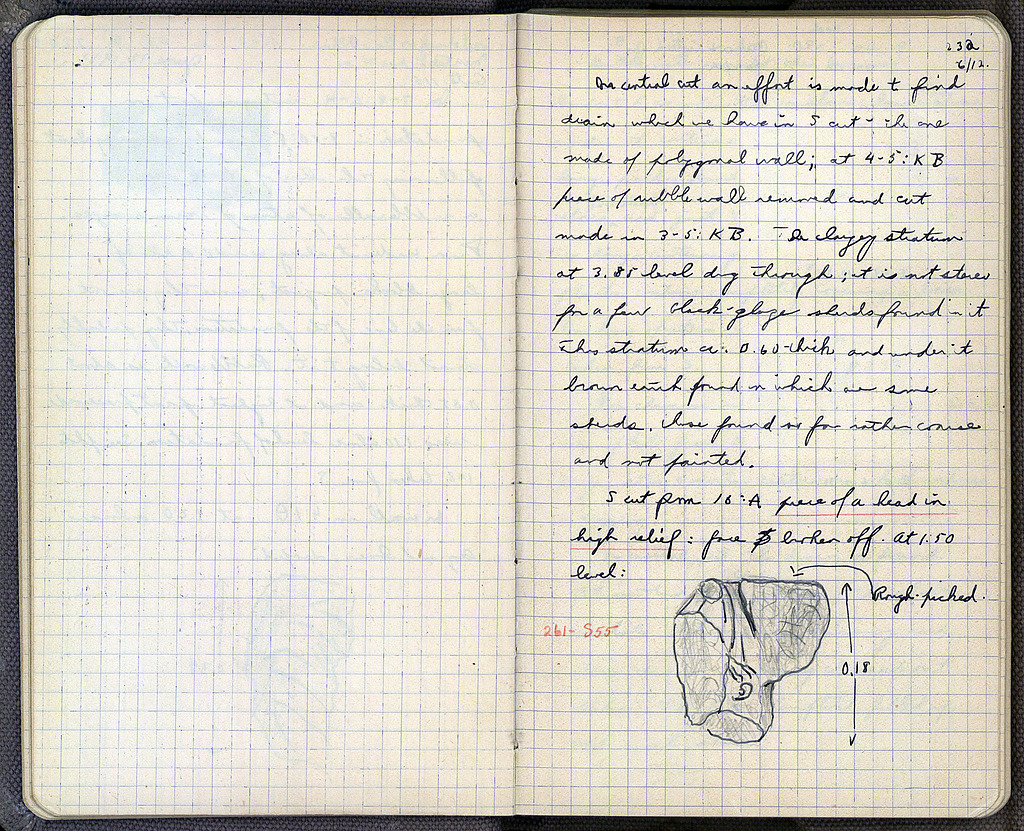 232
6/12.
In central cut an effort is made to find
drain which we have in S cut - the one
made of polygonal wall; at 4-5:KB
piece of rubble wall removed and cut
made in 3-5:KB. The clayey stratum
at 3.85 level dug through; it is not stereo
for a few black-glaze sherds found in it
This stratum ca. 0.60 thick and under it
brown earth found in which are some
sherds. Those found so far rather coarse
and not painted.
S cut from 16:A piece of a head in
high relief: face broken off. At 1.50
level:
Rough-picked.
261-S55
0.18